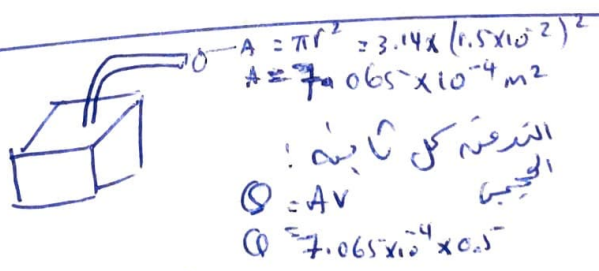 A = πr² = 3.14 x (1.5x10⁻²)²
A = 7.065 x 10⁻⁴ m²
التدفق كل ثانية :
الحجمي
Q = AV
Q = 7.065x10⁻⁴ x 0.5